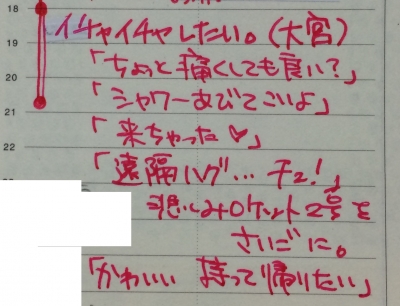 18
19
20
21
22
イチャイチャしたい。(大宮)
「ちょっと痛くしても良い?」
「シャワーあびてこいよ」
「来ちゃった♥」
「遠隔ハグ…チュ!」
悲しみロケット2号を
さいごに。
「かわいい 持って帰りたい」